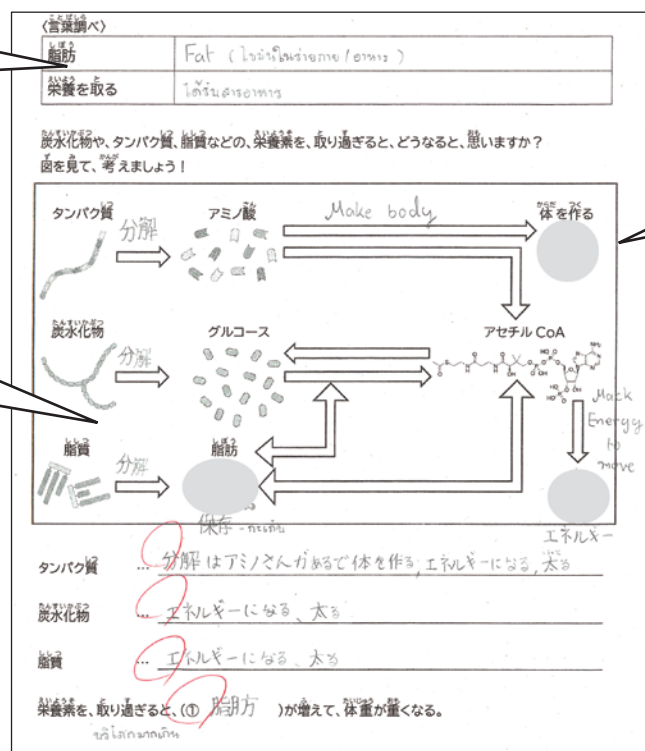 〈言葉調べ〉
ことばしら
脂肪
しぼう
Fat (ไขมันในร่างกาย/อาหาร)
栄養を取る
えいよう と
ได้รับสารอาหาร
炭水化物や、タンパク質、脂質などの、栄養素を、取り過ぎると、どうなると、思いますか?
図を見て、考えましょう!
タンパク質
分解
アミノ酸
Make body
体を作る
炭水化物
分解
グルコース
アセチルCoA
脂質
分解
脂肪
保存
Mack
Energy
to
move
エネルギー
タンパク質 … 分解はアミノさんがあるで体を作る, エネルギーになる, 太る
炭水化物 … エネルギーになる、太る
脂質 … エネルギーになる、太る
栄養素を、取り過ぎると、(① 脂肪 )が増えて、体重が重くなる。